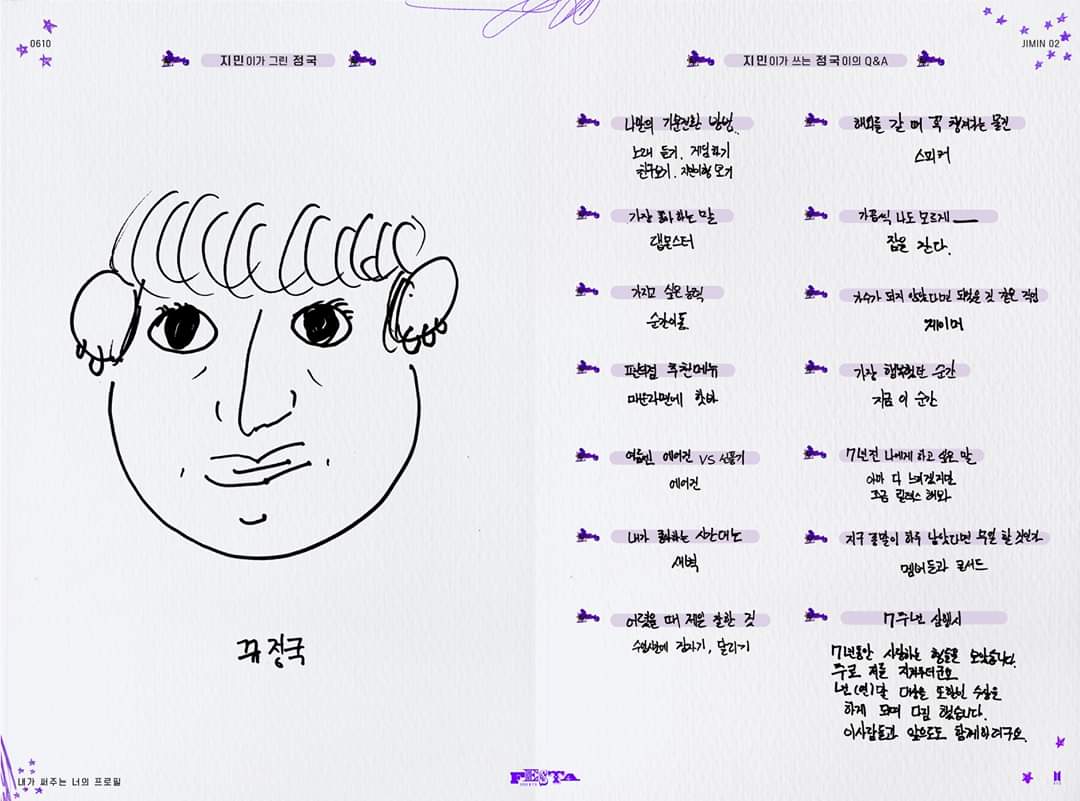 0610
지민이가 그린 정국
뀨 정국
내가 써주는 너의 프로필
JIMIN 02
지민이가 쓰는 정국이의 Q&A
나만의 기분전환 방법..
노래 듣기, 게임하기
친구보기, 지민이형 보기
가장 좋아하는 말
랩몬스터
가지고 싶은 능력
순간이동
편의점 추천메뉴
매운라면에 핫바
여름엔 에어컨 VS 선풍기
에어컨
내가 좋아하는 시간대는
새벽
어렸을 때 제일 잘한 것
수업시간에 잠자기, 달리기
해외를 갈 때 꼭 챙겨가는 물건
스피커
가끔씩 나도 모르게
집을 간다.
가수가 되지 않았다면 되었을 것 같은 직업
게이머
가장 행복했던 순간
지금 이 순간
7년전 나에게 하고 싶은 말
아마 다 느끼겠지만
조금 릴렉스 해봐
지구 종말이 하루 남았다면 무얼 할 것인가
멤버들과 콘서트
7주년 삼행시
7년동안 시상하는 형들을 보았습니다.
주로 저를 지켜주더군요
년(연)달 대상을 또 수상을
하게 되며 다짐 했습니다.
이사람들과 앞으로도 함께하려구요.
FESTA
BTS